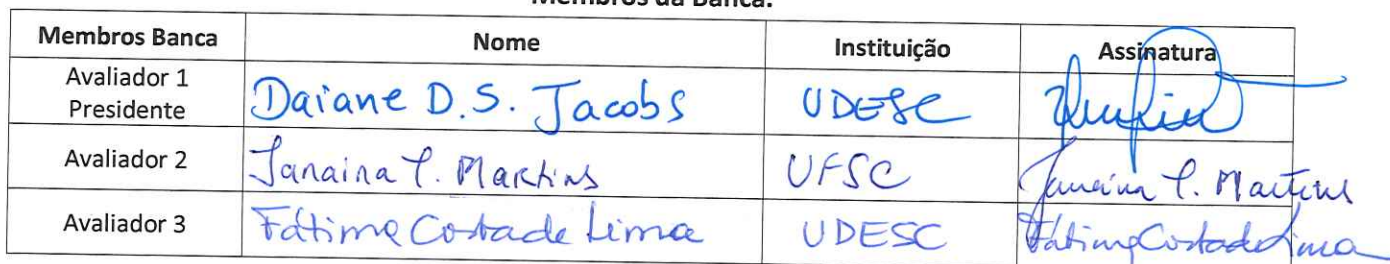 Membros da Banca:
Membros Banca Nome Instituição Assinatura
Avaliador 1
Presidente Daiane D.S. Jacobs UDESC
Avaliador 2 Janaina T. Martins UFSC Janaina T. Martins
Avaliador 3 Fátima Costa de Lima UDESC Fátima Costa de Lima